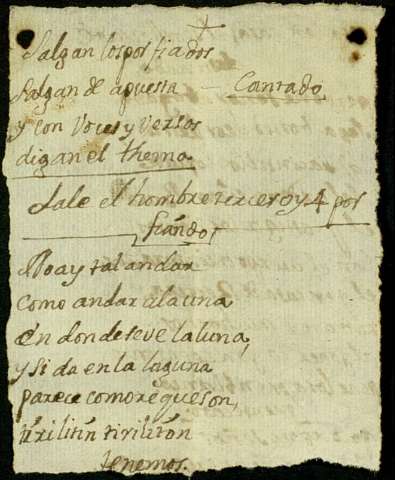 Salgan los porfiados
Salgan de apuesta — Cantado
y con Vozes y Versos
digan el thema
Sale el hombre tercero y 4 por
fiando
No ay tal andar
como andar a la una
en donde se ve la luna,
y si da en la laguna
parece como requeson,
tirilitin tirilitón
tenemos.